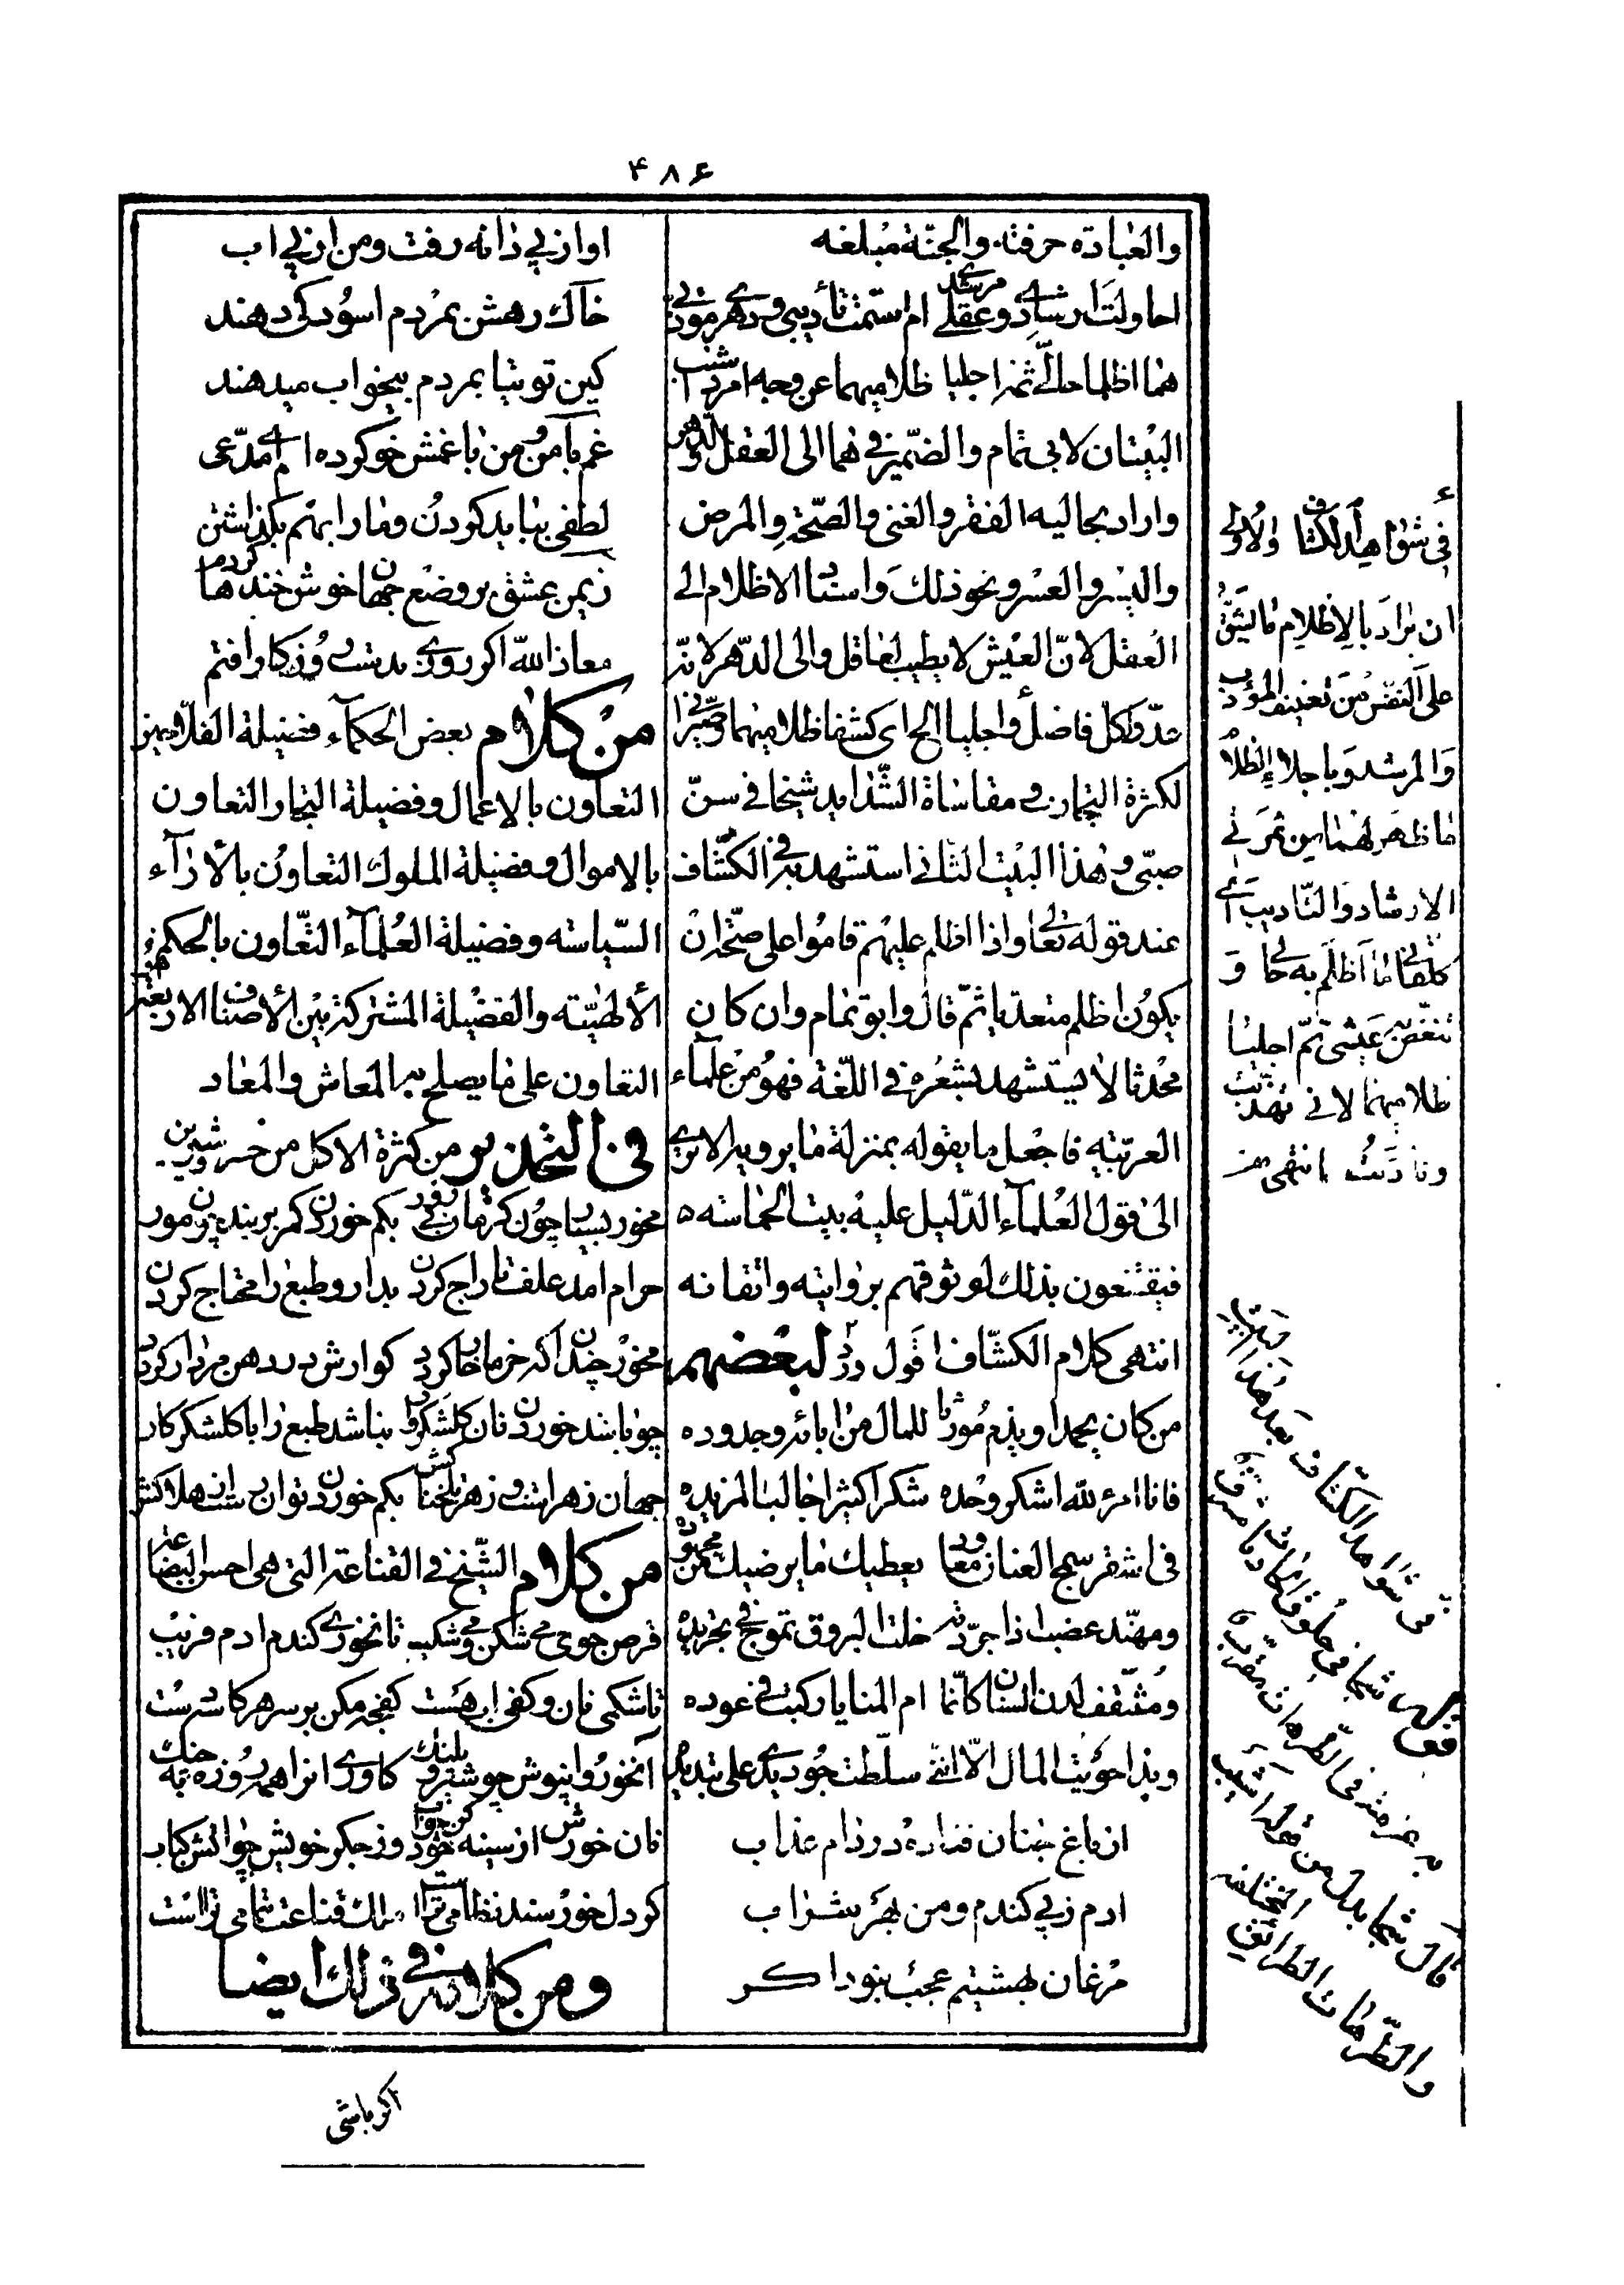 ۴۸۶
والعبادة حرفته والجنة مبلغه
احاولت ارشادي فعقلي مرشدي ام استمت تأديبي فدهري مؤدبي
هما اظلما حالي ثمة اجليا ظلاميهما عن وجه امرد اشيب
البيتان لابي تمام والضمير في هما الى العقل والدهر
واراد بحاليه الفقر والغنى والصحة والمرض
واليسر والعسر ونحو ذلك واسناد الاظلام الى
العقل لان العيش لا يطيب لعاقل والى الدهر لانه
عدو لكل فاضل واجليا الخ اي كشفا ظلاميهما وصيراني
لكثرة التجارب ومقاساة الشدايد شيخا في سن
صبي وهذا البيت الثاني استشهد به في الكشاف
عند قوله تعالى واذا اظلم عليهم قاموا على صحة ان
يكون اظلم متعديا ثم قال وابو تمام وان كان
محدثا لا يستشهد بشعره في اللغة فهو من علماء
العربية فاجعل ما يقوله بمنزلة ما يرويه الا ترى
الى قول العلماء الدليل عليه بيت الحماسة
فيقتنعون بذلك لوثوقهم بروايته واتقانه
انتهى كلام الكشاف اقول لبعضهم
من كان يحمد او يذم مورثا للمال من ابائه وجدوده
فانا امرء لله اشكر وحده شكرا كثيرا جالبا لمزيده
في اشقر سمح العنان معاود يعطيك ما يرضيك من مجهوده
ومهند عضب اذا جردته خلت البروق تموج في تجريده
ومثقف لدن السنان كانما ام المنايا ركبت في عوده
وبذا حويت المال الا انني سلطت جود يدي على تبديده
از باغ جنان فتاده در دام عذاب
ادم زپي كندم ومن بهر شراب
مرغان بهشتيم عجب نبود اكر
او از پي دانه رفت ومن از پي اب
خاك رهش بمردم اسوده كي دهند
كين توتيا بمردم بيخواب ميدهند
غم با من ومن با غمش خو كرده ام اي مدعي
لطفي بيايد كردن وما را بهم بكذاشتن
زيمن عشق بر وضع جهان خوش خنده ها كردم
معاذ الله اكر روزي بدست روزكار افتم
من كلام بعض الحكماء فضيلة الفلاحين
التعاون بالاعمال وفضيلة التجار التعاون
بالاموال وفضيلة الملوك التعاون بالآراء
السياسته وفضيلة العلماء التعاون بالحكم
الالهيته والفضيلة المشتركة بين الاصناف الاربعة
التعاون على ما يصلح به المعاش والمعاد
في التحذير من كثرة الاكل من خسرو شيرين
مخور بسيار چون كرمان بكم خوردن كمر بربند چون مور
حرام امد علف تاراج كردن بدارو طبع را محتاج كردن
مخور چندان كه خرما خار كردد كوارش در دهن مردار كردد
چو باشد خوردن نان كلشكروار نباشد طبع را با كلشكر كار
جهان زهر است و زهر تلخناكش بكم خوردن توان رستن از هلاكش
من كلام الشيخ في القناعة التي هي احسن البضاعة
قرص جوي مي شكن ومي شكيب تا نخوري كندم ادم فريب
تا شكمي نان وكفي اب هست كفچه مكن بر سر هر كاسه دست
ان خور وان پوش چو شير وپلنك كاوري انرا همه روزه بچنك
نان خورش از سينه خود كن چو اب وز جكر خويش چو اتش كباب
كر دل خورسند نظامي تراست ملك قناعت بتمامي تراست
ومن كلامه في ذلك ايضا
اكر باشي
في شواهد الكشاف والاولى
ان يراد بالاظلام ما يشق
على النفس من تعنيف المؤدب
والمرشد وباجلاء الظلام
ما ظهر لهما من ثمرتي
الارشاد والتاديب اي
كلفاني ما اظلم به حالي و
تنغص عيشي ثم اجليا
ظلاميهما لاني تهذبت
وتادبت انتهى منه